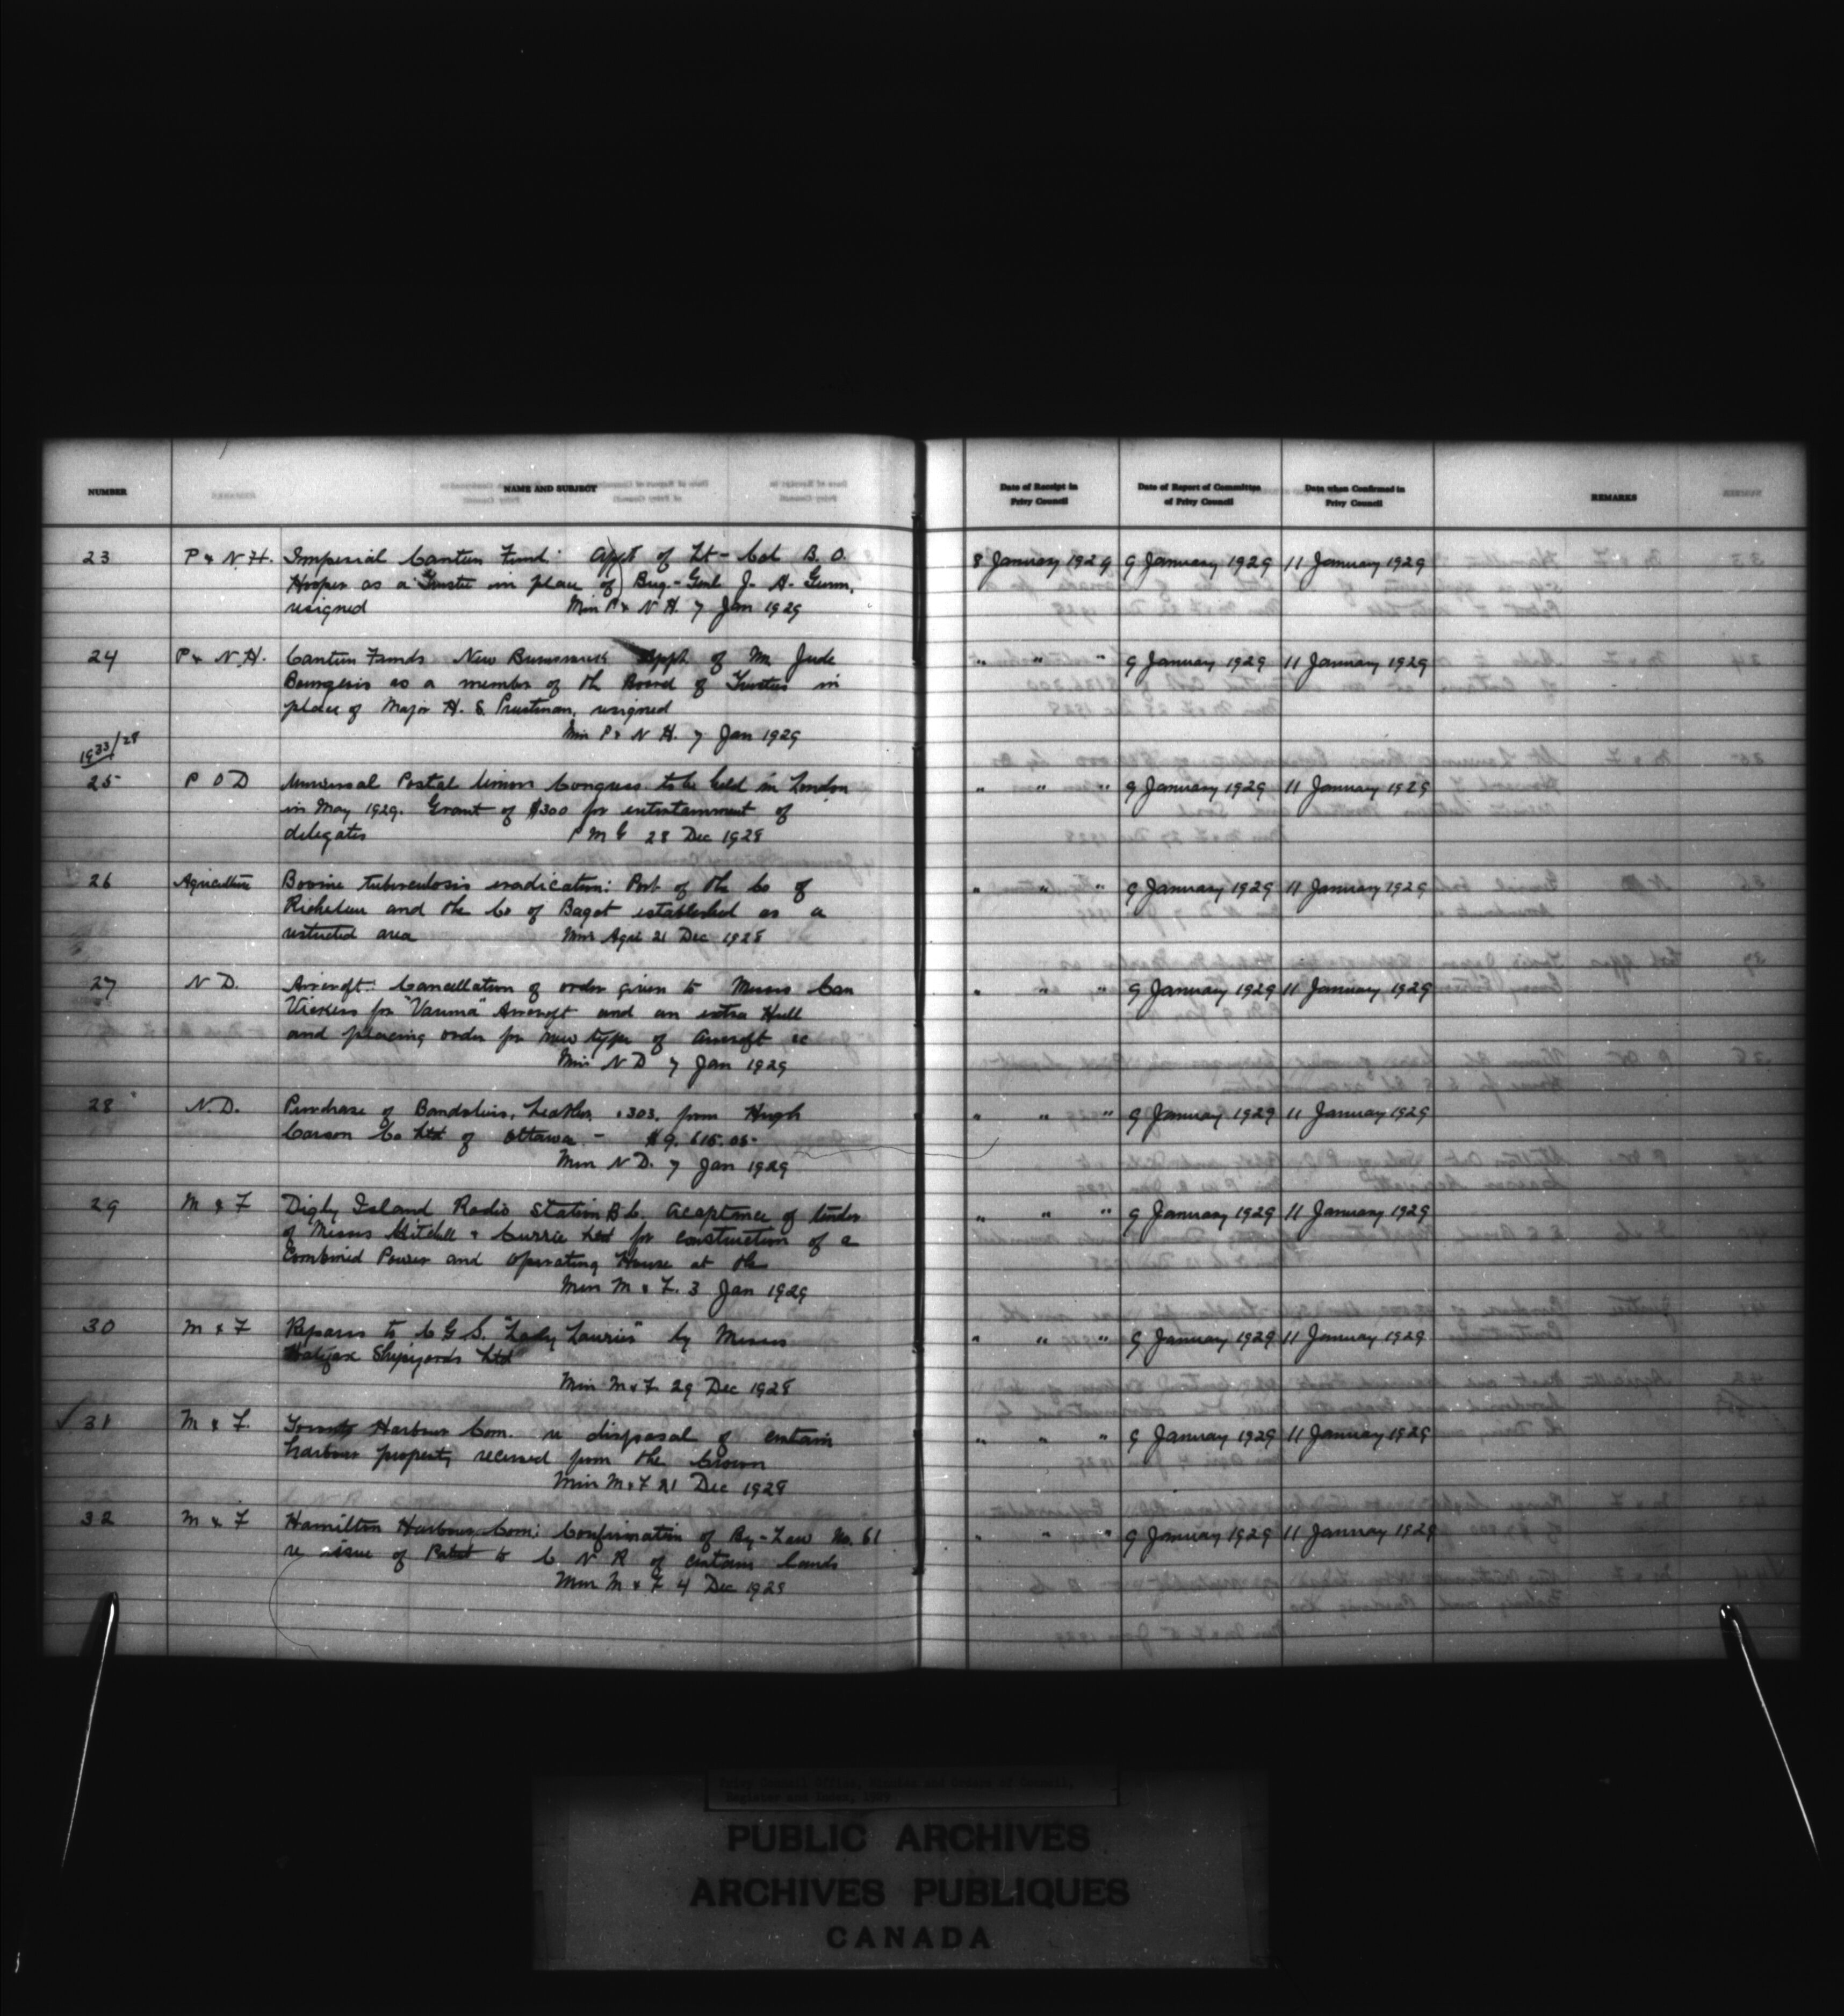 NUMBER NAME AND SUBJECT Date of Receipt in Privy Council Date of Report of Committee of Privy Council Date when Confirmed in Privy Council REMARKS
23 P & N.H. Imperial Canteen Fund: Appt of Lt-Col B. O. 8 January 1929 9 January 1929 11 January 1929
Hooper as a Trustee in place of Brig.-Genl J. A. Gunn,
resigned Min P & N.H. 7 Jan 1929
24 P & N.H. Canteen Funds New Brunswick Appt of Mr Jude " " " 9 January 1929 11 January 1929
Bourgeois as a member of the Board of Trustees in
place of Major H. S. Prustman, resigned
Min P & N H. 7 Jan 1929
1933/28
25 P O D Universal Postal Union Congress to be held in London " " " 9 January 1929 11 January 1929
in May 1929. Grant of $300 for entertainment of
delegates P M G 28 Dec 1928
26 Agriculture Bovine tuberculosis eradication: Part of the Co of " " " 9 January 1929 11 January 1929
Richelieu and the Co of Bagot established as a
restricted area Min Agri 21 Dec 1928
27 N D. Aircraft: Cancellation of order given to Messrs Can " " " 9 January 1929 11 January 1929
Vickers for "Varuna" Aircraft and an extra Hull
and placing order for new type of Aircraft &c
Min N D 7 Jan 1929
28 N.D. Purchase of Bandoliers, Leather, .303, from Hugh " " " 9 January 1929 11 January 1929
Carson Co Ltd of Ottawa - $9,615.05-
Min N D. 7 Jan 1929
29 M & F Digby Island Radio Station B.C. Acceptance of tender " " " 9 January 1929 11 January 1929
of Messrs Mitchell & Currie Ltd for construction of a
Combined Power and Operating House at the
Min M & F. 3 Jan 1929
30 M & F Repairs to C G S. "Lady Laurier" by Messrs " " " 9 January 1929 11 January 1929
Halifax Shipyards Ltd
Min M & F. 29 Dec 1928
✓ 31 M & F. Toronto Harbour Com. re disposal of certain " " " 9 January 1929 11 January 1929
harbour property received from the Crown
Min M & F 21 Dec 1928
32 M & F Hamilton Harbour Com: Confirmation of By-Law No. 61 " " " 9 January 1929 11 January 1929
re issue of Patent to C. N R of certain lands
Min M & F 4 Dec 1928
PUBLIC ARCHIVES
ARCHIVES PUBLIQUES
CANADA